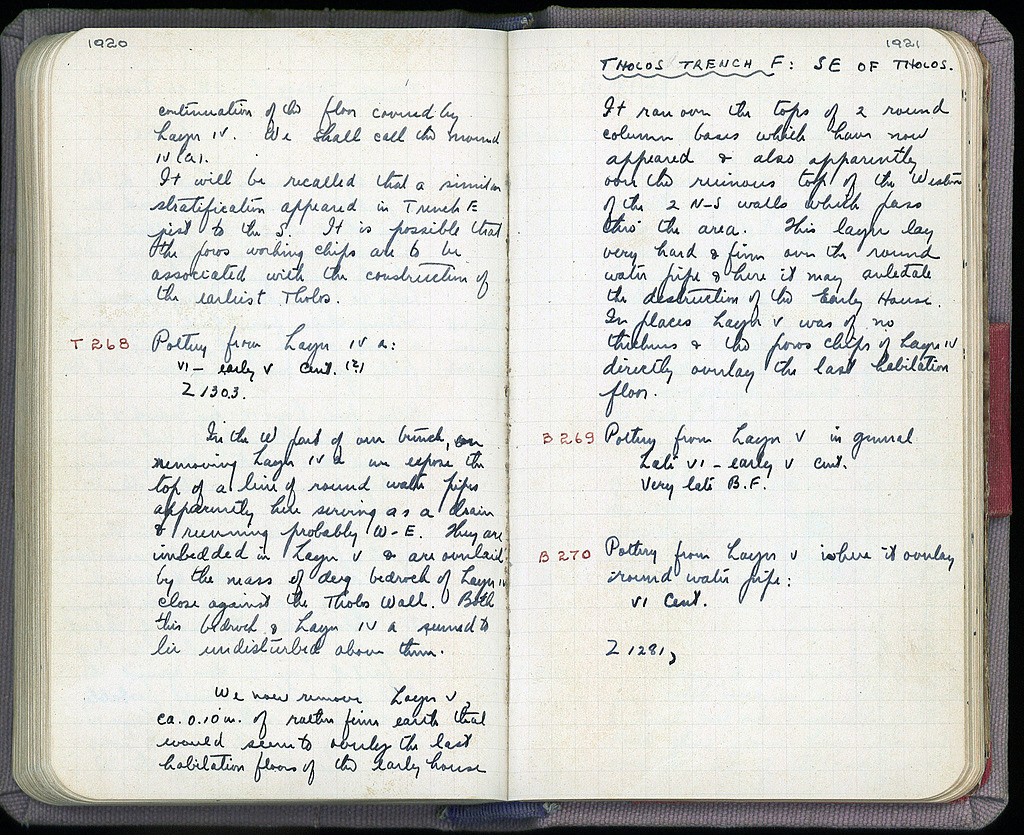 1920
continuation of the floor covered by
Layer IV. We shall call this mound
IV (a).
It will be recalled that a similar
stratification appeared in Trench E
just to the S. It is possible that
the poros working chips are to be
associated with the construction of
the earliest Tholos.
T 268 Pottery from Layer IV a:
VI – early V cent. (?)
Z 1303.
In the W part of our trench, on
removing Layer IV a we expose the
top of a line of round water pipes
apparently here serving as a drain
& running probably W-E. They are
imbedded in Layer V & are overlaid
by the mass of dug bedrock of Layer IV
close against the Tholos Wall. Both
this bedrock & Layer IV a seemed to
lie undisturbed above them.
We now remove Layer V,
ca. 0.10 m. of rather firm earth that
would seem to overly the last
habitation floors of the early house
1921
THOLOS TRENCH F: SE OF THOLOS.
It ran over the tops of 2 round
column bases which have now
appeared & also apparently
over the ruinous top of the Western
of the 2 N-S walls which pass
thro' the area. This layer lay
very hard & firm over the round
water pipe & here it may antedate
the destruction of the Early House.
In places Layer V was of no
thickness & the poros chips of Layer IV
directly overlay the last habitation
floor.
B 269 Pottery from Layer V in general
Late VI – early V cent.
Very late B.F.
B 270 Pottery from Layer V where it overlay
round water pipe:
VI Cent.
Z 1281,